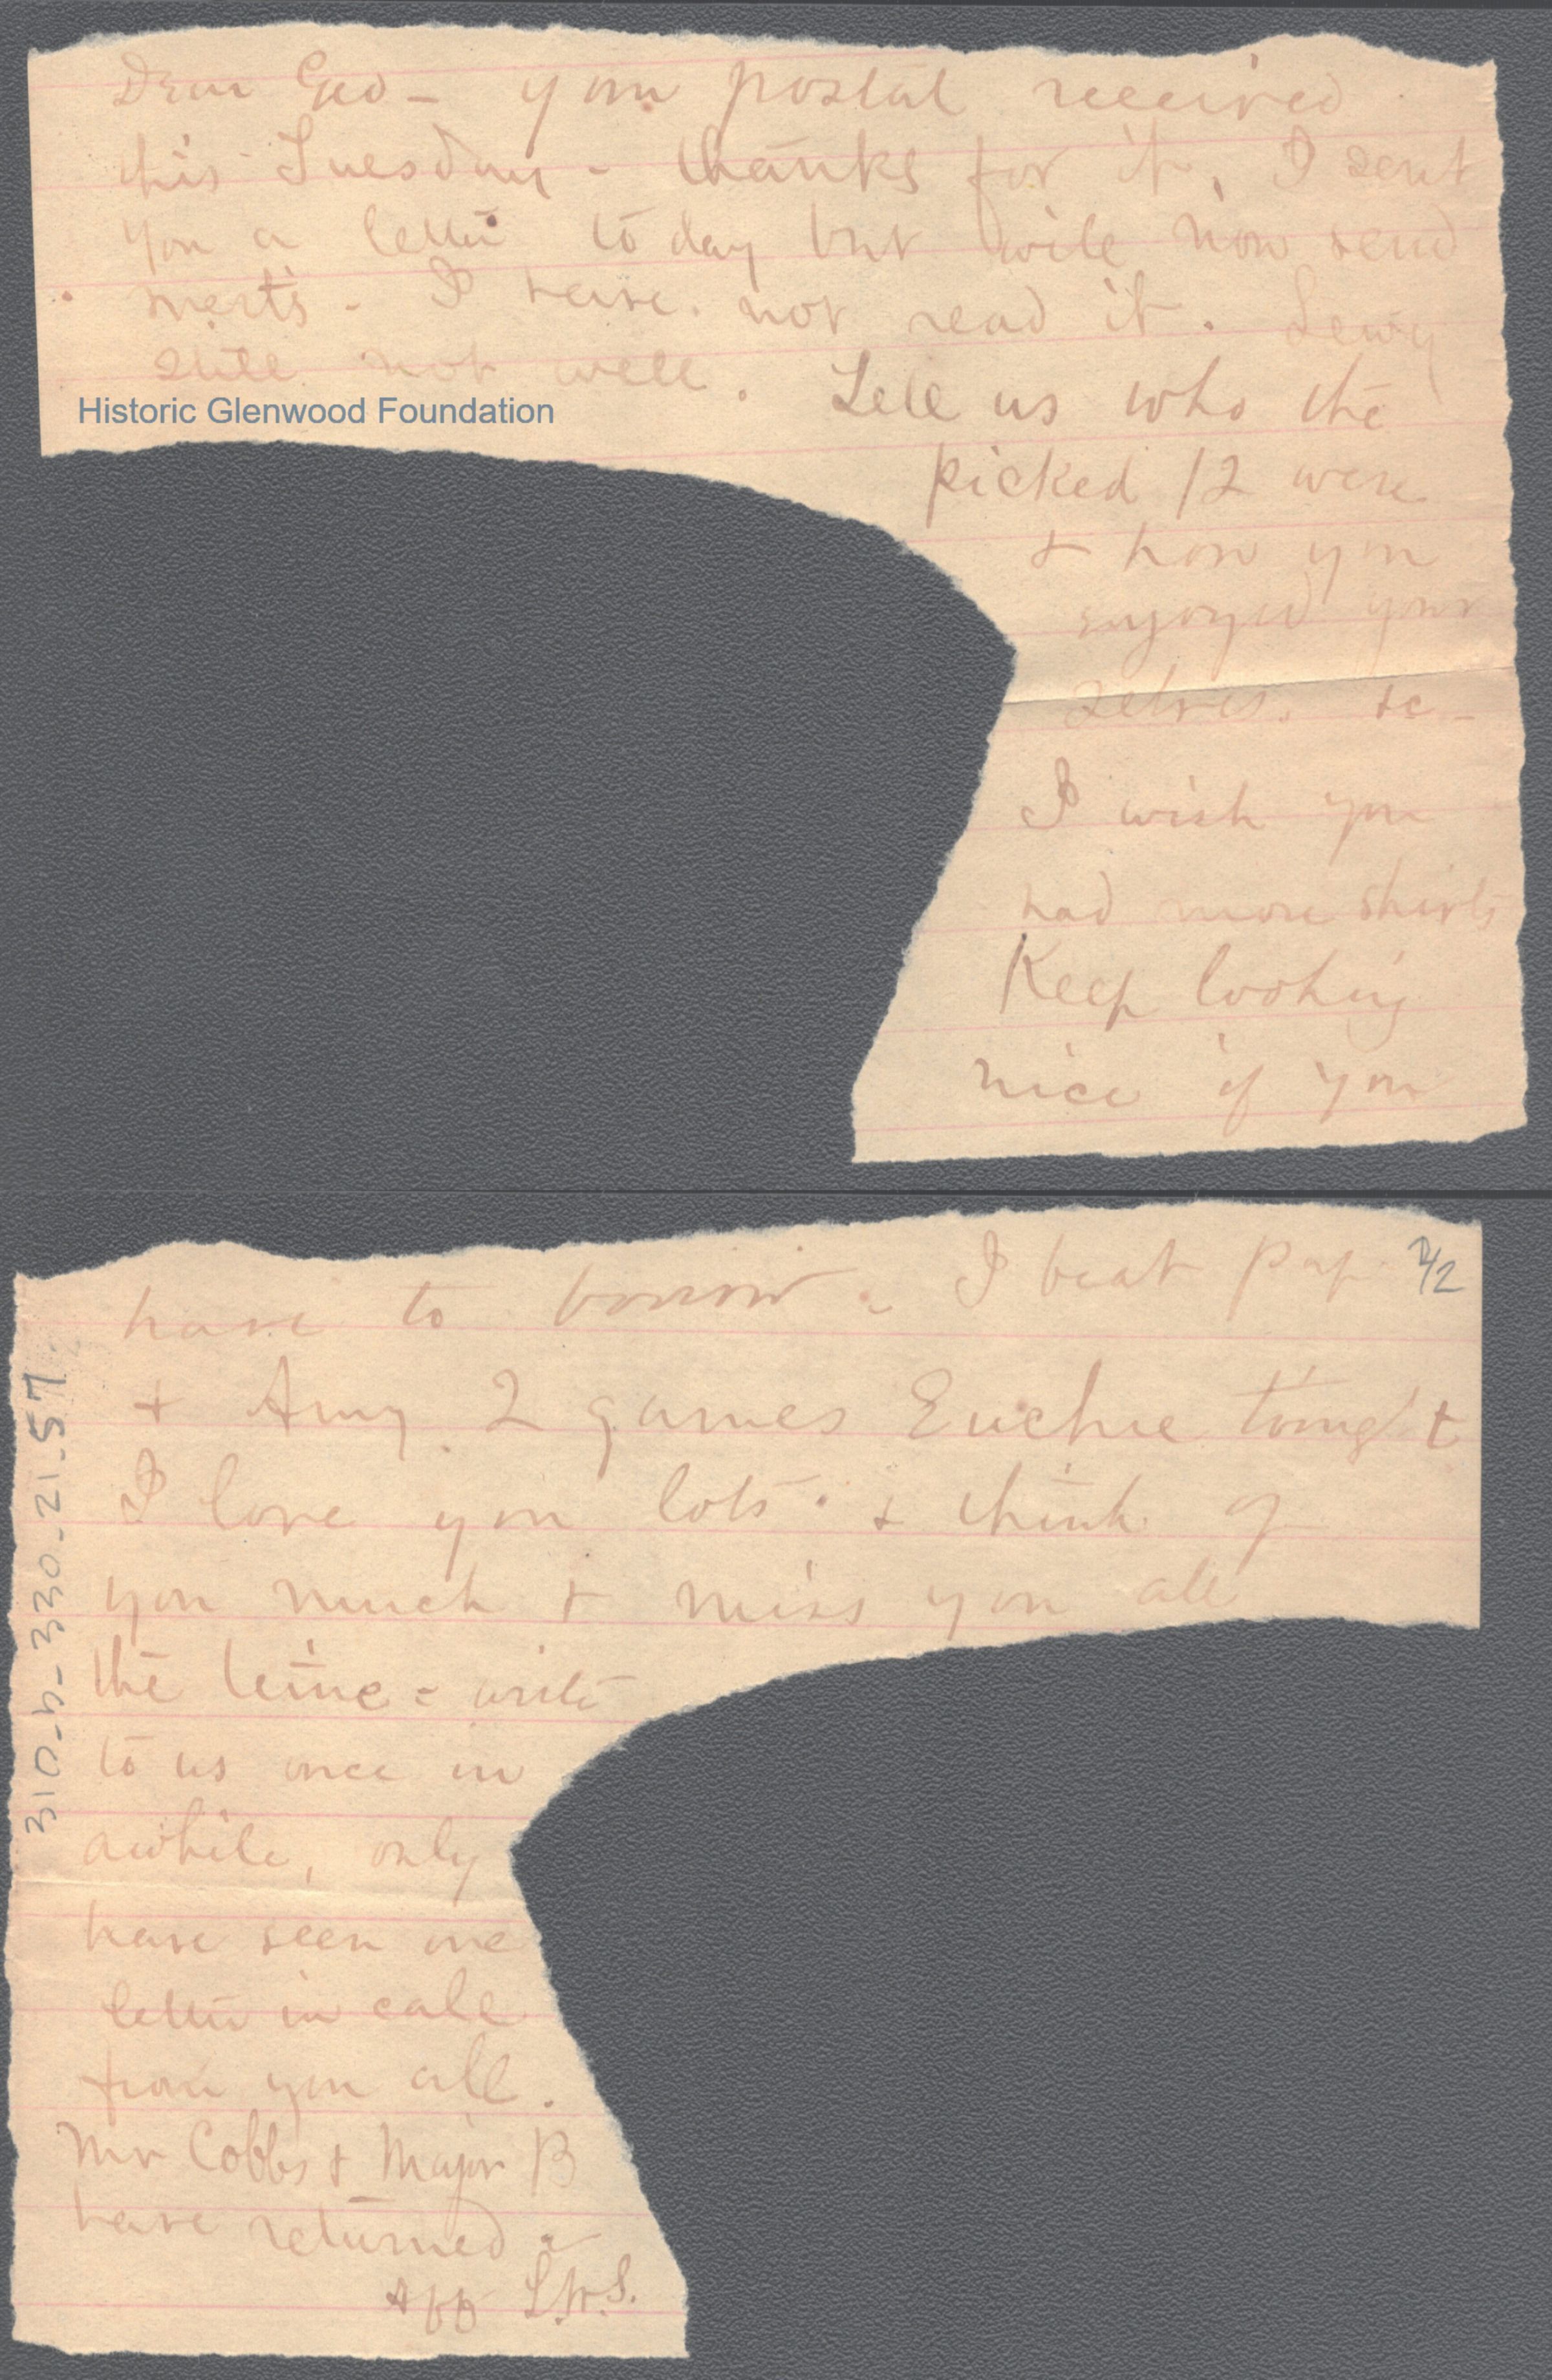 Dear Geo - your postal received
this Tuesday - thanks for it. I sent
you a letter to day but will now send
. I have not read it. Lewy
still not well. Tell us who the
Historic Glenwood Foundation
picked 12 were
+ how you
enjoyed your
selves. &c -
I wish you
had more shirts
Keep looking
nice if you
have to borrow. I beat Pap
2/2
+ Amy 2 games Euchre tonight
I love you lots + think of
you much + miss you all
the time - write
to us once in
awhile, only
have seen one
letter in call
from you all.
Mr Cobbs + Major B
have returned
Aff L.W.S.
310-h-330-21-57